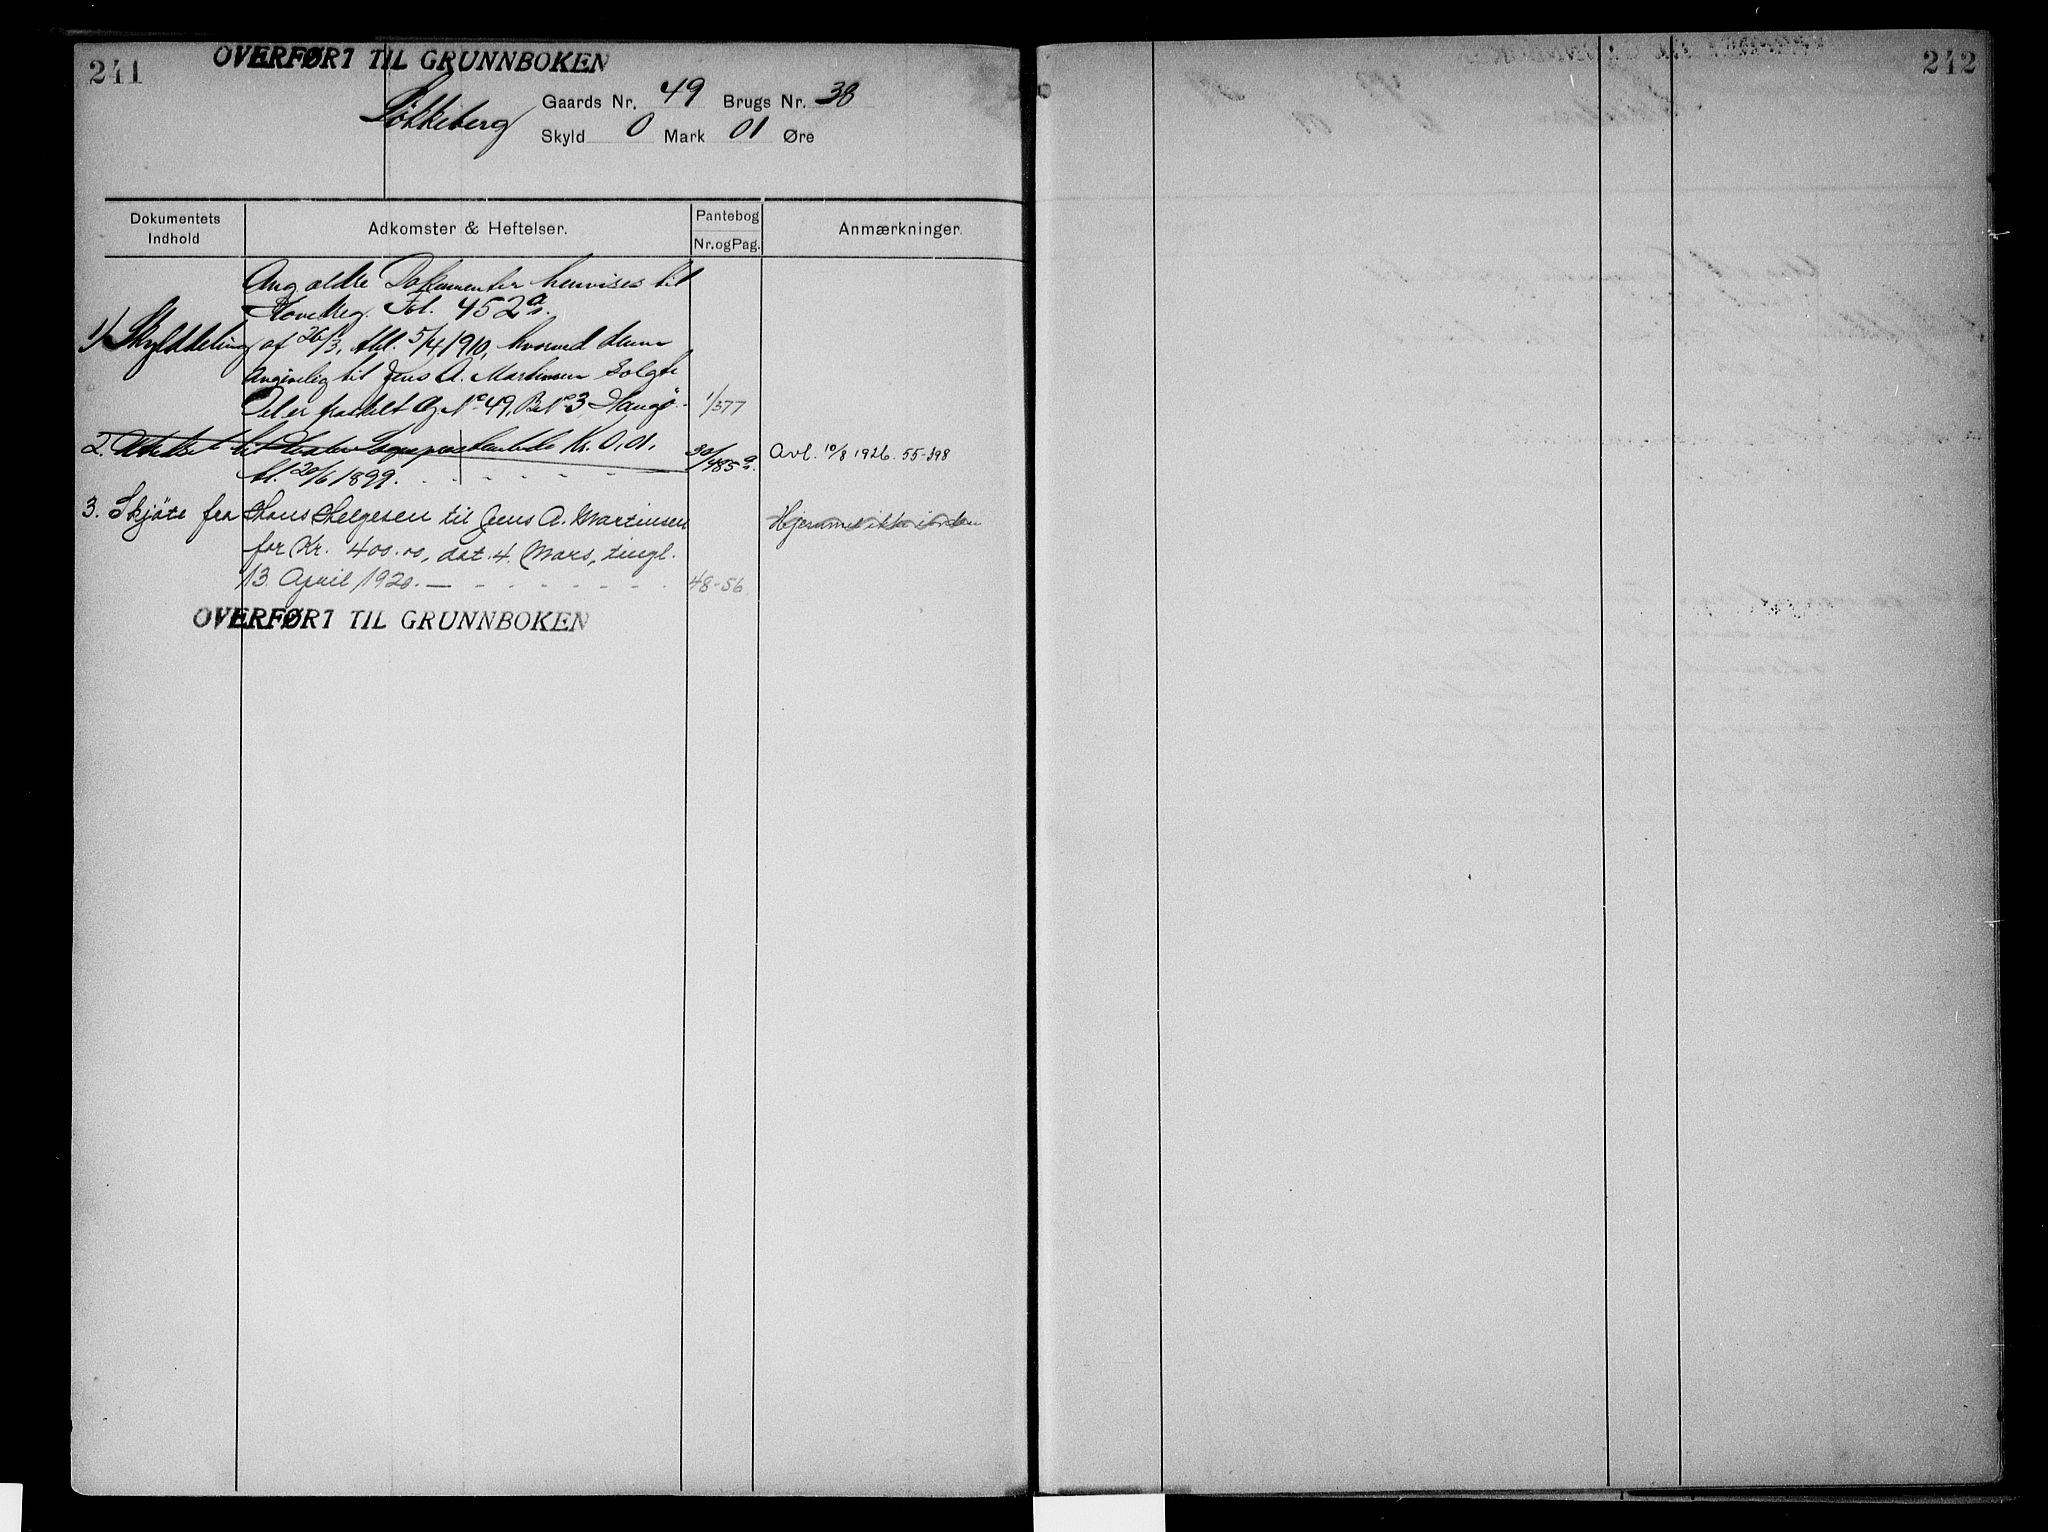 241
OVERFØRT TIL GRUNNBOKEN
242
Løkkeberg
Gaards Nr. 49 Brugs Nr. 38
Skyld 0 Mark 01 Øre
Dokumentets Indhold
Adkomster & Heftelser.
Pantebog Nr. og Pag.
Anmærkninger.
Ang. ældre Dokumenter henvises til
Fol. 452a.
1) Skylddeling af 26/3, thl. 5/4 1910, hvorved denne
angivelig til Jens A. Martinsen solgte
Del er fraskilt G. No 49, B. No 3, 1/377
2. til Kr. 0,01. 30/485a. Avl. 10/8 1926. 55-398
tl. 20/6 1899.
3. Skjøte fra Hans Helgesen til Jens A. Martinsen Hjemmel ikke i orden
for Kr. 400.00, dat. 4. Mars, tingl.
13. April 1920. — 48-56
OVERFØRT TIL GRUNNBOKEN